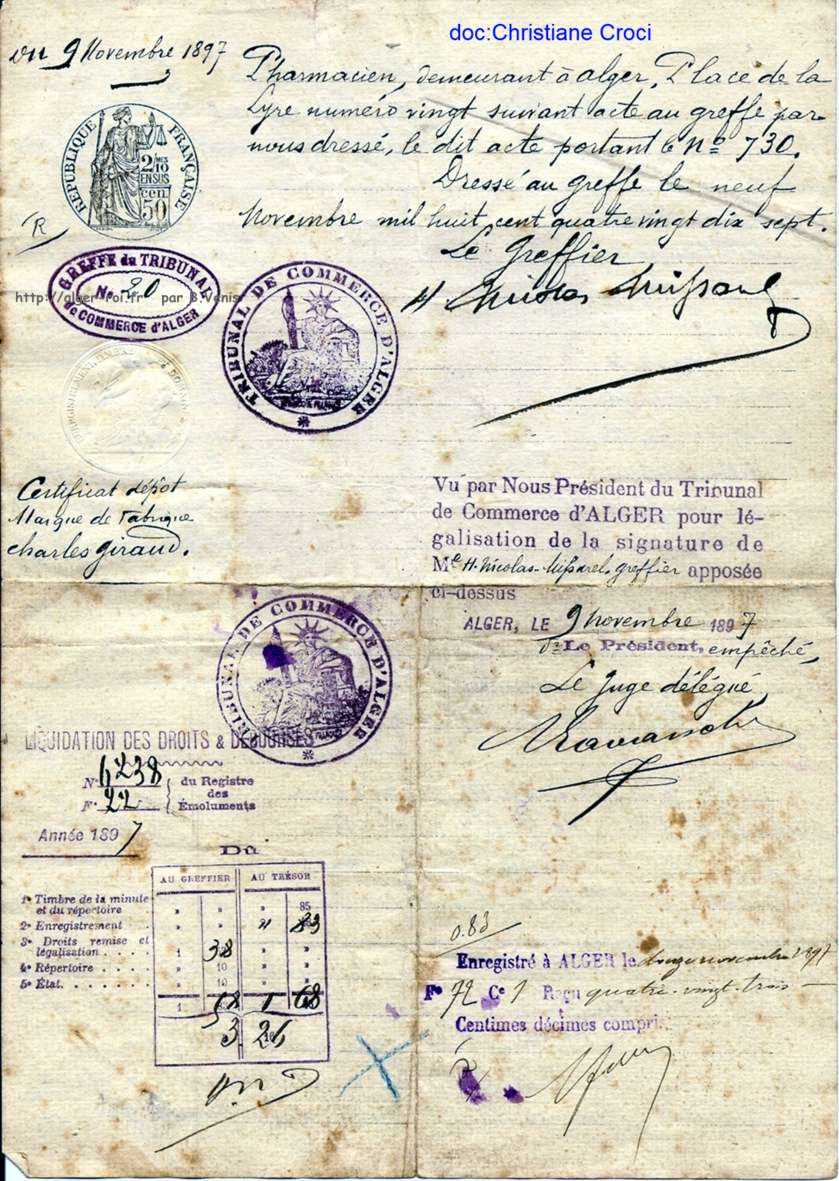 doc:Christiane Croci
Du 9 Novembre 1897
Pharmacien, demeurant à alger, Place de la
Lyre numéro vingt suivant acte au greffe par
nous dressé, le dit acte portant le No 730.
Dressé au greffe le neuf
Novembre mil huit cent quatre vingt dix sept.
Le Greffier
REPUBLIQUE FRANÇAISE
2/10 EN SUS
50 cen
GREFFE du TRIBUNAL
No 20
de COMMERCE d'ALGER
http://alger-roi.fr par B.Venis
TRIBUNAL DE COMMERCE D'ALGER
Certificat dépôt
Marque de Fabrique
Charles Giraud.
Vu par Nous Président du Tribunal
de Commerce d'ALGER pour lé-
galisation de la signature de
Me H. Nicolas greffier apposée
ci-dessus
ALGER, LE 9 Novembre 1897
Le Président, empêché,
Le Juge délégué
TRIBUNAL DE COMMERCE D'ALGER
LIQUIDATION DES DROITS & DEBOURSÉS
No 6238 du Registre
des
Fo 22 Émoluments
Année 1897
Dû
AU GREFFIER AU TRÉSOR
1o Timbre de la minute
et du répertoire » » » 85
2o Enregistrement » » " 83
3o Droits remise et
légalisation 1 38 » »
4o Répertoire » 10 » »
5o État » » »
1 68 1 68
3.26
0.83
Enregistré à ALGER le novembre 1897
Fo 72 Ce 1 Reçu quatre-vingt-trois
Centimes décimes compris.